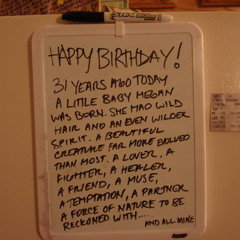 HAPPY BIRTHDAY!
31 YEARS AGO TODAY
A LITTLE BABY MEGAN
WAS BORN. SHE HAD WILD
HAIR AND AN EVEN WILDER
SPIRIT. A BEAUTIFUL
CREATURE FAR MORE EVOLVED
THAN MOST. A LOVER, A
FIGHTER, A HEALER,
A FRIEND, A MUSE,
A TEMPTATION, A PARTNER
A FORCE OF NATURE TO BE
RECKONED WITH....
AND ALL MINE